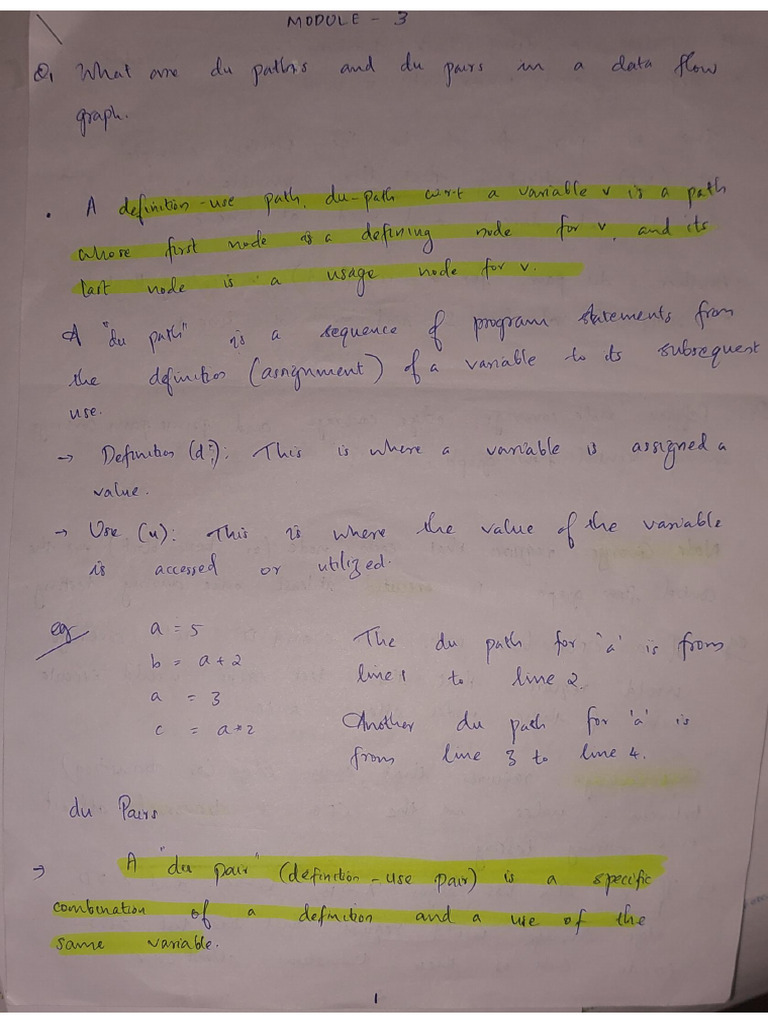 MODULE - 3
Q1 What are du paths and du pairs in a data flow
graph.
• A definition-use path, du-path w.r.t a variable v is a path
whose first node is a defining node for v, and its
last node is a usage node for v.
A "du path" is a sequence of program statements from
the definition (assignment) of a variable to its subsequent
use.
→ Definition (d): This is where a variable is assigned a
value.
→ Use (u): This is where the value of the variable
is accessed or utilized.
eg a = 5 The du path for 'a' is from
b = a + 2 line 1 to line 2.
a = 3 Another du path for 'a' is
c = a*2 from line 3 to line 4.
du Pairs
→ A "du pair" (definition-use pair) is a specific
combination of a definition and a use of the
same variable.
1